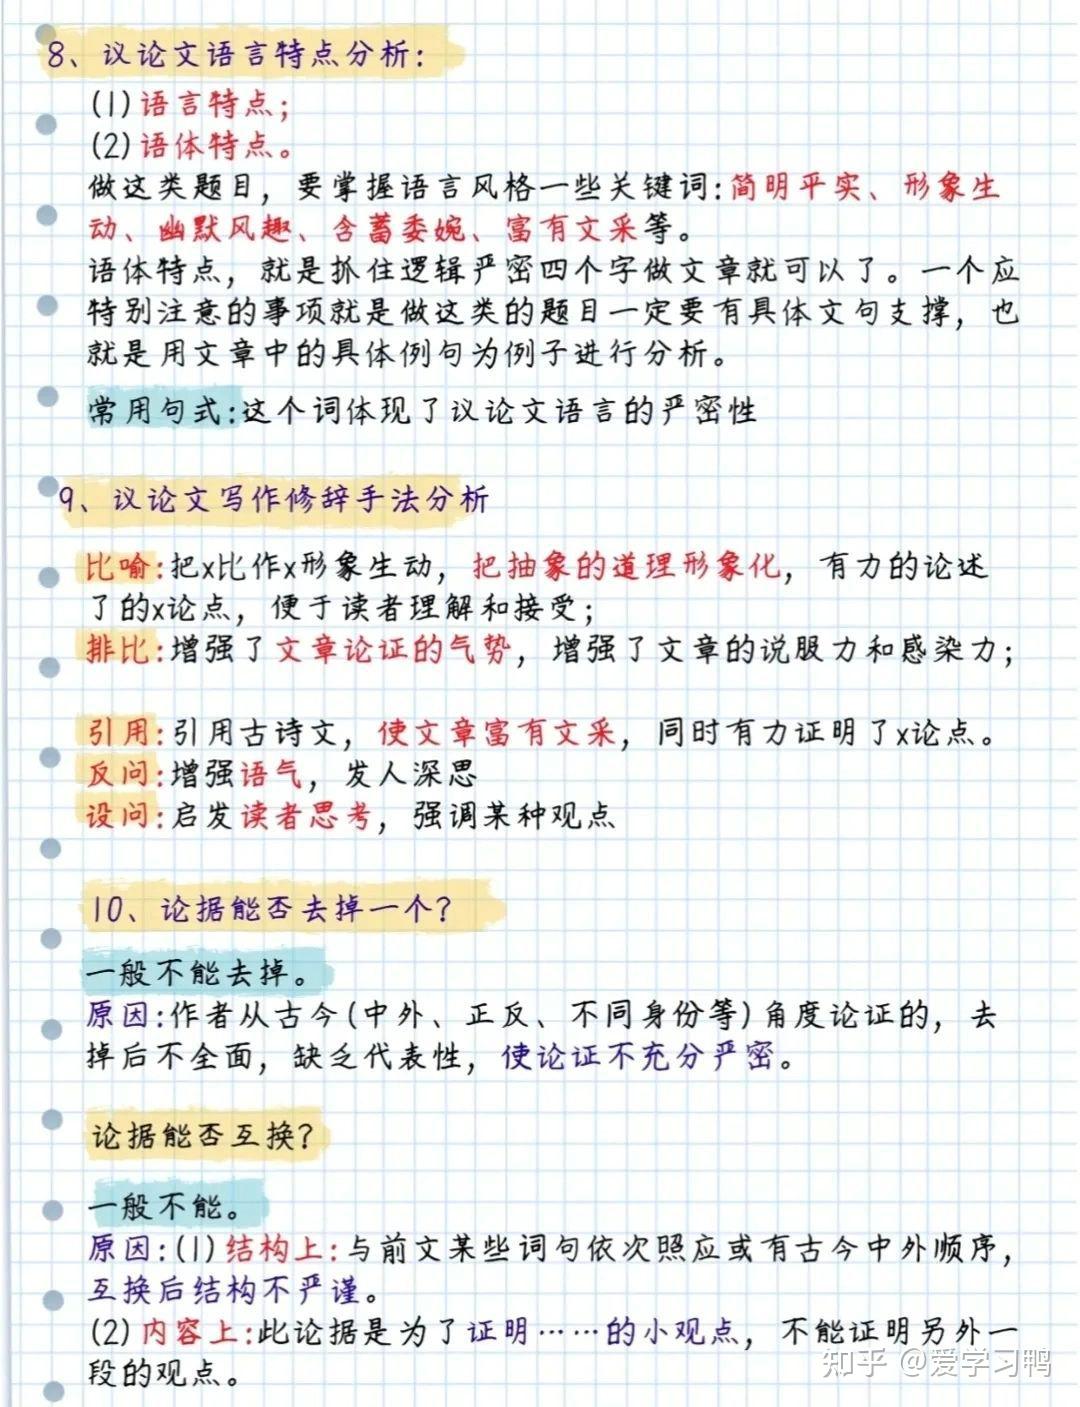 8、议论文语言特点分析：
(1)语言特点；
(2)语体特点。
做这类题目，要掌握语言风格一些关键词：简明平实、形象生
动、幽默风趣、含蓄委婉、富有文采等。
语体特点，就是抓住逻辑严密四个字做文章就可以了。一个应
特别注意的事项就是做这类的题目一定要有具体文句支撑，也
就是用文章中的具体例句为例子进行分析。
常用句式：这个词体现了议论文语言的严密性
9、议论文写作修辞手法分析
比喻：把x比作x形象生动，把抽象的道理形象化，有力的论述
了的x论点，便于读者理解和接受；
排比：增强了文章论证的气势，增强了文章的说服力和感染力；
引用：引用古诗文，使文章富有文采，同时有力证明了x论点。
反问：增强语气，发人深思
设问：启发读者思考，强调某种观点
10、论据能否去掉一个？
一般不能去掉。
原因：作者从古今(中外、正反、不同身份等)角度论证的，去
掉后不全面，缺乏代表性，使论证不充分严密。
论据能否互换？
一般不能。
原因：(1)结构上：与前文某些词句依次照应或有古今中外顺序，
互换后结构不严谨。
(2)内容上：此论据是为了证明……的小观点，不能证明另外一
段的观点。
知乎 @爱学习鸭